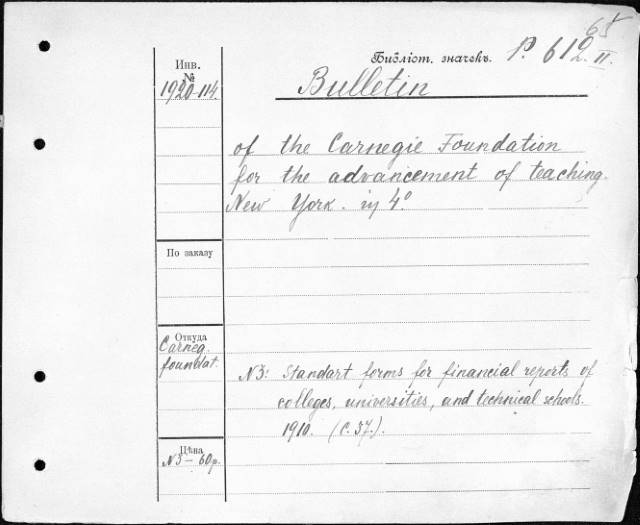 65
Инв.
№
1920-114.
Библіот. значекъ. P. 612. II.
Bulletin
of the Carnegie Foundation
for the advancement of teaching.
New York. in 4°
По заказу
Откуда
Carneg.
foundat.
N3: Standart forms for financial reports of
colleges, universities, and technical schools.
1910. (c. 37.).
Цѣна
N3 - 60 р.